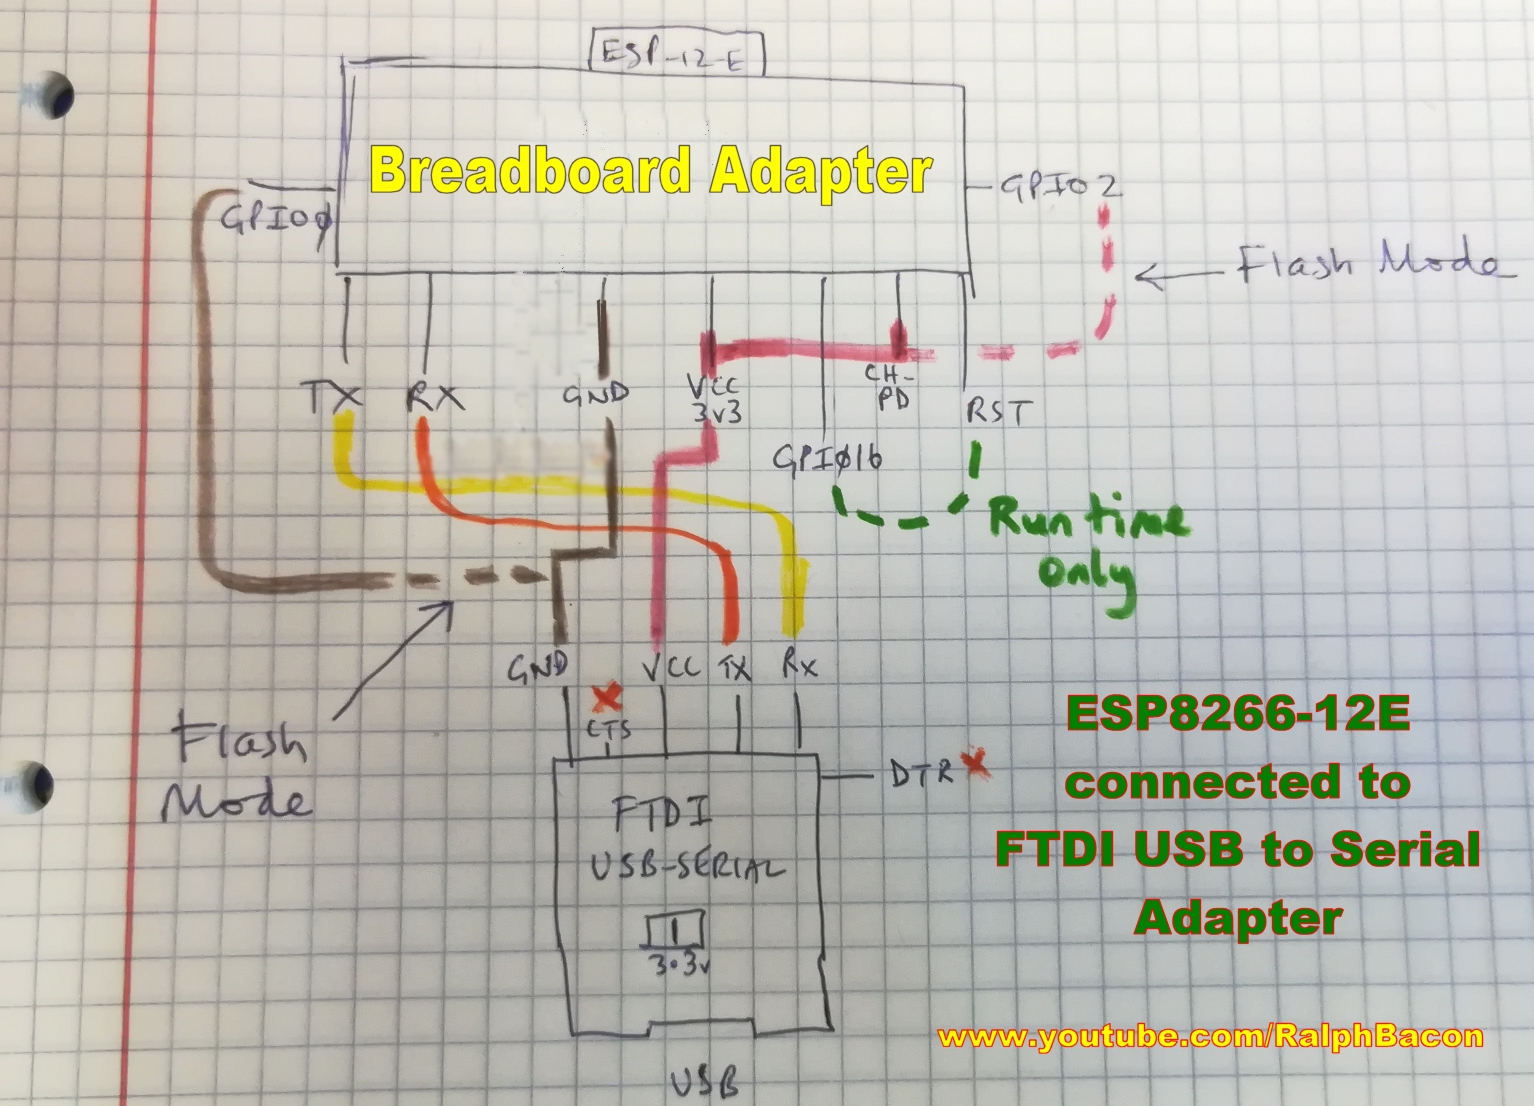 ESP-12-E
Breadboard Adapter
GPIO0
GPIO2
Flash Mode
TX
RX
GND
VCC
3v3
CH-
PD
RST
GPIO16
Run time
only
Flash
Mode
GND
VCC
TX
Rx
CTS
DTR
FTDI
USB-SERIAL
3.3v
USB
ESP8266-12E
connected to
FTDI USB to Serial
Adapter
www.youtube.com/RalphBacon